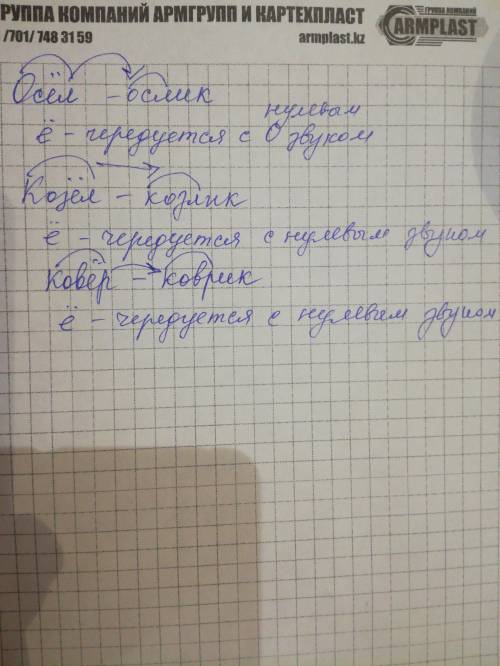 РУППА КОМПАНИЙ АРМГРУПП И КАРТЕХПЛАСТ
ГРУППА КОМПАНИЙ
ARMPLAST
/701/ 748 31 59
armplast.kz
Осёл - ослик
нулевым
ё - чередуется с 0 звуком
Козёл - козлик
ё - чередуется с нулевым звуком
Ковёр - коврик
ё - чередуется с нулевым звуком